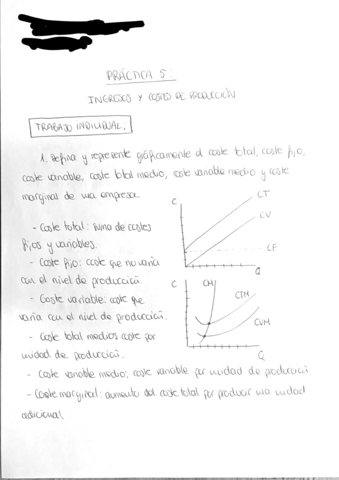 PRÁCTICA 5:
INGRESOS Y COSTES DE PRODUCCIÓN
TRABAJO INDIVIDUAL.
1. Defina y represente gráficamente el coste total, coste fijo,
coste variable, coste total medio, coste variable medio y coste
marginal de una empresa.
- Coste total: suma de costes
fijos y variables.
- Coste fijo: coste que no varía
con el nivel de producción.
- Coste variable: coste que
varía con el nivel de producción.
- Coste total medio: coste por
unidad de producción.
- Coste variable medio: coste variable por unidad de producción.
- Coste marginal: aumento del coste total por producir una unidad
adicional
C
CT
CV
CF
Q
C
CM
CTM
CVM
Q